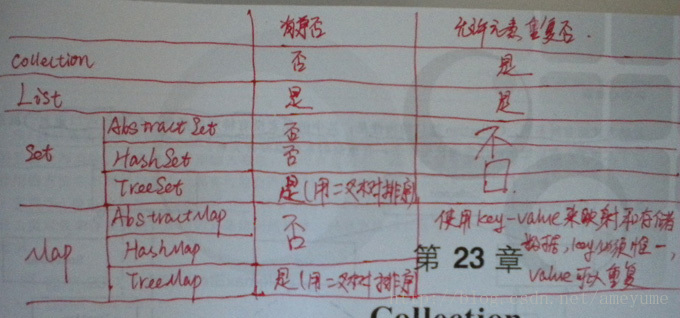 有序否 允许元素重复否.
Collection 否 是
List 是 是
Set AbstractSet 否 不
HashSet 否
TreeSet 是(用二叉树排序) 口.
Map AbstractMap 否 使用key-value来映射和存储
HashMap 数据,key必须惟一,
TreeMap 是(用二叉树排序) value可以重复
第 23 章
http://blog.csdn.net/ameyume
Collection